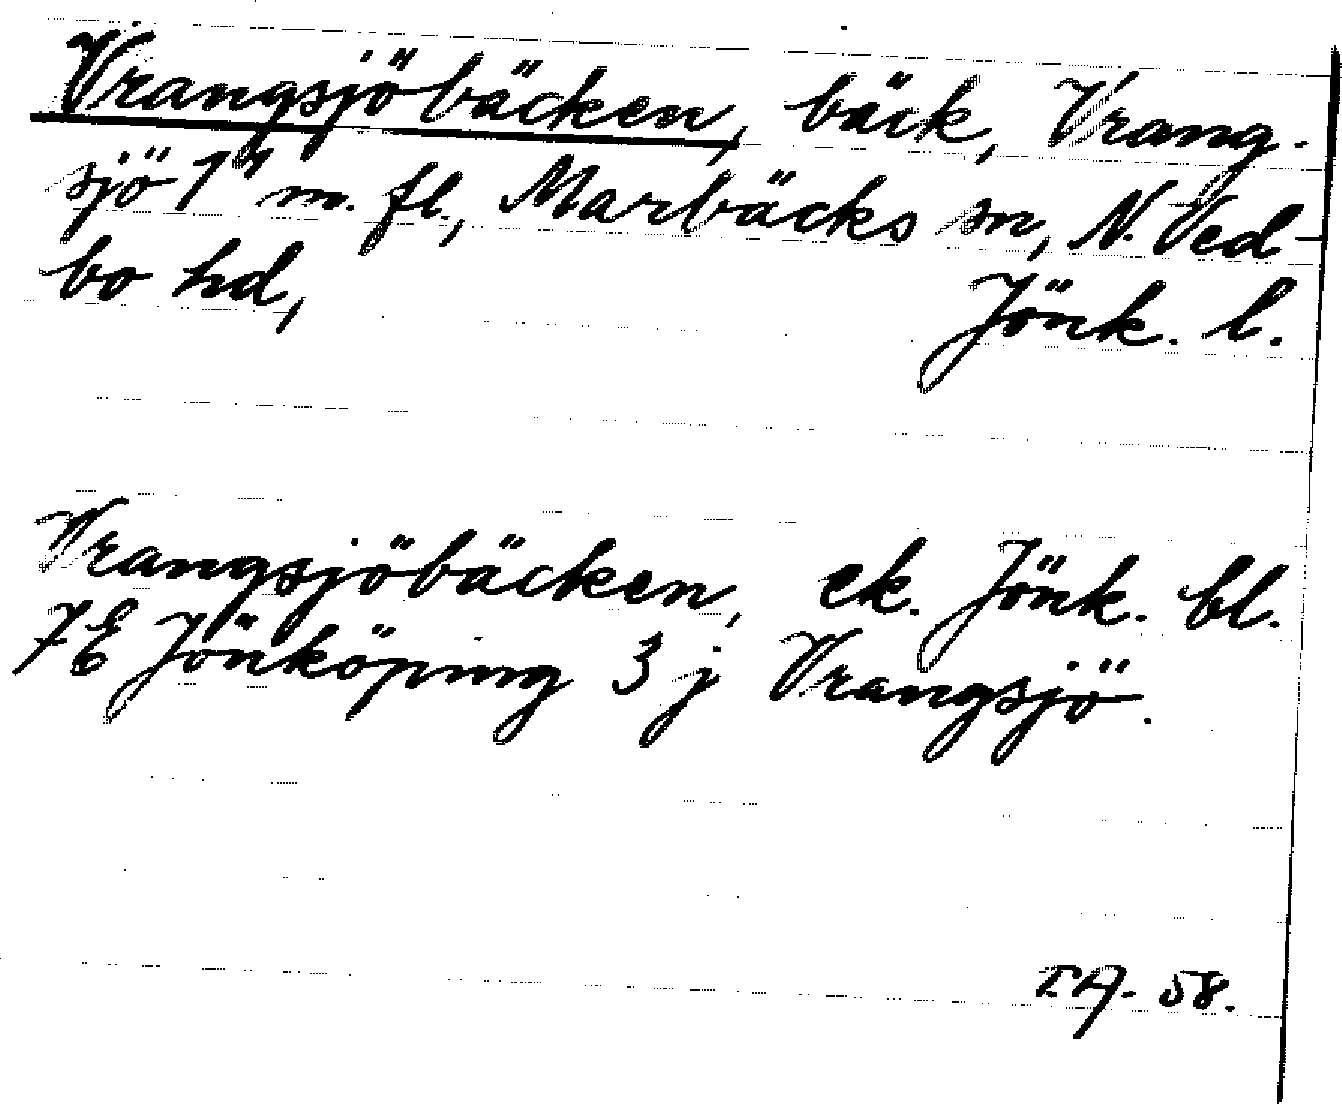 Vrangsjöbäcken, bäck, Vrang-
sjö 1" m. fl., Marbäcks sn, N. Ved-
bo hd, Jönk. l.
Vrangsjöbäcken, ek. Jönk. bl.
7E Jönköping 3 j Vrangsjö.
58.